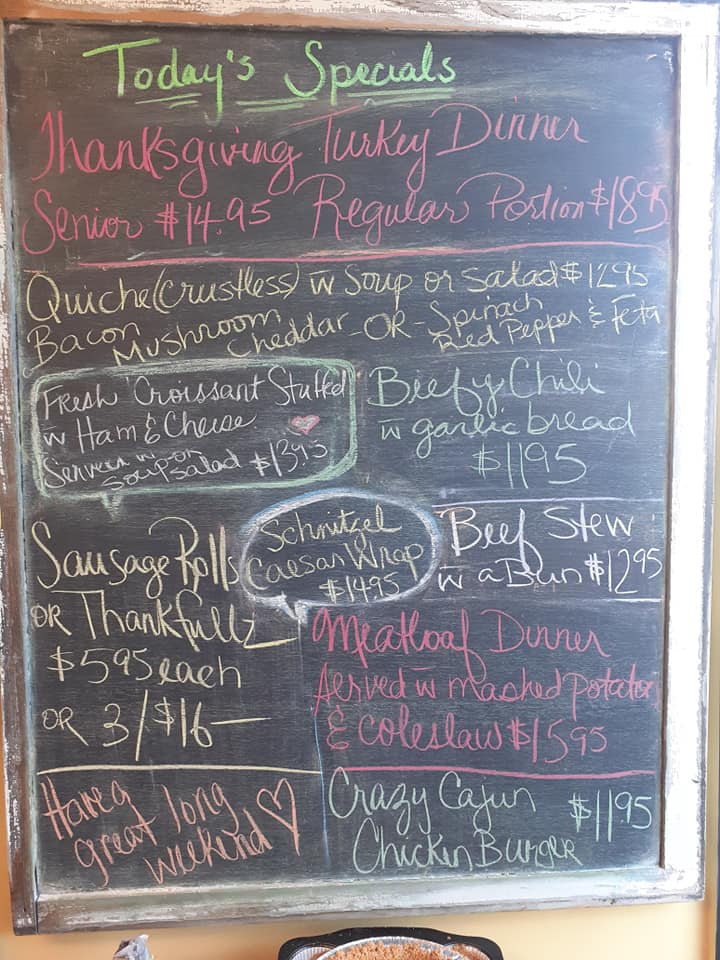 Today's Specials
Thanksgiving Turkey Dinner
Senior $14.95 Regular Portion $18.95
Quiche (crustless) w̄ Soup or Salad $12.95
Bacon Mushroom Cheddar - OR - Spinach Red Pepper & Feta
Fresh Croissant Stuffed
w̄ Ham & Cheese
soup or salad $13.95
Beefy Chili
w̄ garlic bread
$11.95
Sausage Rolls
OR Thankfullz
$5.95 each
OR 3/$16—
Schnitzel
Caesar Wrap
$14.95
Beef Stew
w̄ a Bun $12.95
Meatloaf Dinner
Served w̄ mashed potatoe
& coleslaw $15.95
Have a
great long
weekend
Crazy Cajun
Chicken Burger $11.95